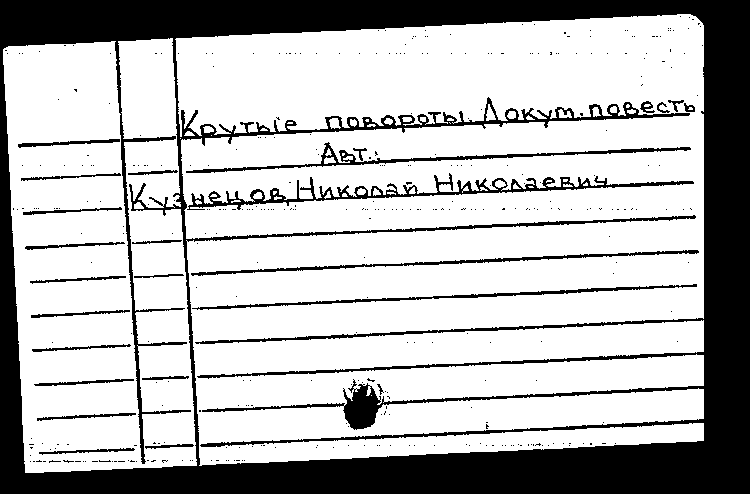 Крутые повороты. Докум. повесть.
Авт.:
Кузнецов, Николай Николаевич